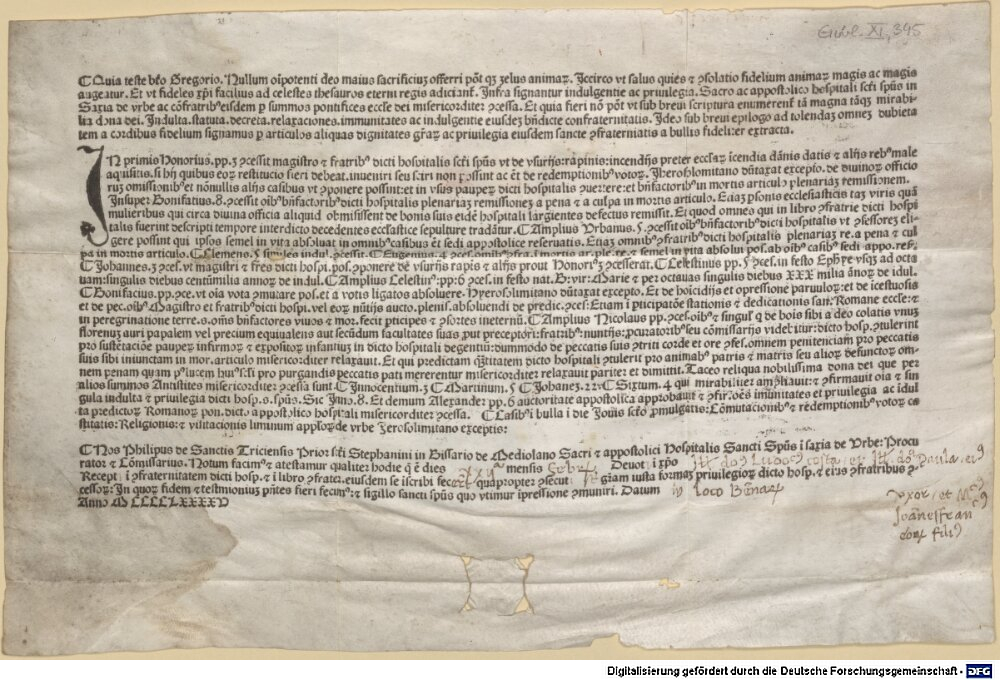 Einbl. XI, 345
¶Quia teste bto Gregorio. Nullum oipotenti deo maius sacrificiuz offerri pot qȝ zelus animaꝝ. Jccirco vt salus quies ⁊ ꝯsolatio fidelium animaꝝ magis ac magis
augeatur. Et vt fideles xpi facilius ad celestes thesauros eterni regis adiciant. Infra signantur indulgentie ac priuilegia. Sacro ac appostolico hospitali scti spus in
Saxia de vrbe ac cofratribꝰ eisdem ꝑ summos pontifices eccle dei misericorditer ꝯcessa. Et quia fieri no pot vt sub breui scriptura enumerent ta magna taqȝ mirabi-
lia dona dei. Indulta. statuta. decreta. relaxaciones. immunitates ac indulgentie eiusdez bndicte confraternitatis. Ideo sub breui epilogo ad tolendaz omnez dubieta
tem a cordibus fidelium signamus ꝑ articulos aliquas dignitates graȝ ac priuilegia eiusdem sancte ꝯfraterniatis a bullis fideliter extracta.
IN primis Honorius.pp.3 ꝯcessit magistro ⁊ fratribꝰ dicti hospitalis scti spus vt de vsurijs: rapinis: incendijs preter ecclaȝ icendia danis datis ⁊ alijs rebꝰ male
aquisitis. si hij quibus eoꝝ restitucio fieri debeat. inueniri seu sciri non possint ac et de redemptionibꝰ votoꝝ. Iherosolimitano dutaxat excepto. de diuinoꝝ officio
ruȝ omissionibꝰ et nonullis alijs casibus vt ꝯponere possint: et in vsus pauperȝ dicti hospitalis ꝯuertere: et bnfactoribꝰ in mortis articulo plenariaȝ remissionem.
Insuper Bonifatius.8. ꝯcessit oibꝰ bnfactoribꝰ dicti hospitalis plenariaȝ remissionez a pena ⁊ a culpa in mortis articulo. Etiaȝ psonis ecclesiasticis taȝ viris qua
mulieribus qui circa diuina officia aliquid obmisissent de bonis suis eide hospitali largientes defectus remissit. Et quod omnes qui in libro ꝯfratrie dicti hospi
talis fuerint descripti tempore interdicto decedentes ecclastice sepulture tradatur. ¶Amplius Vrbanus.5 ꝯcessit oibꝰ bnfactoribꝰ dicti hospitalis vt ꝯfessorez eli-
gere possint qui ipsos semel in vita absoluat in omnibꝰ casibus et sedi appostolice reseruatis. Etiaȝ omnibꝰ ꝯfratribꝰ dicti hospitalis plenariaȝ re. a pena ⁊ cul
pa in mortis articulo. ¶Clemens.5 similes indul. ꝯcessit. ¶Eugenius.4 ꝯces. omibꝰ ꝯfra. i mortis ar. ple. re. ⁊ semel in vita absolui pos. ab oibꝰ casibꝰ sedi appo. reß.
¶Johannes.3 ꝯces. vt magistri ⁊ fres dicti hospi. pos. ꝯponere de vsurijs rapis ⁊ alijs prout Honoriꝰ ꝯcesserat. ¶Celestinus pp.5 ꝯces. in festo Ephꝭe vsqȝ ad octa
uam: singulis diebus centumilia annoꝝ de indul. ¶Amplius Celestinꝰ: pp:6 ꝯces. in festo nat. B: vir: Marie ⁊ peȝ octauas singulis diebus XXX milia anoꝝ de idul.
¶Bonifacius.pp. ꝯce. vt oia vota ꝯmutare pos. et a votis ligatos absoluere. Hyerosolimitano dutaxat excepto. Et de hoicidijs et opressione paruuloꝝ: et de icestuosis
et de pec. oibꝰ Magistro et fratribꝰ dicti hospi. vel eoꝝ nutijs aucto. plenis. absoluendi de predic. ꝯces: Etiam i pticipatoe stationis ⁊ dedicationis san: Romane eccle: ⁊
in peregrinatione terre. s. omis bnfactores viuos ⁊ mor. fecit pticipes ⁊ ꝯsortes ineternu. ¶Amplius Nicolaus pp. ꝯces. oibꝰ ⁊ singulꝰ q de bois sibi a deo colatis vnuȝ
florenuȝ auri papalem vel precium equiualens aut secudum facultates suas put preceptori: fratribꝰ: nuntijs: pcuratoribꝰ seu comissarijs videbitur: dicto hosp. ꝯtulerint
pro sustetacoe pauperȝ infirmoꝝ ⁊ expositoꝝ infantiuȝ in dicto hospitali degentiu: dummodo de peccatis suis ꝯtriti corde et ore ꝯfes. omnem penitenciam pro peccatis
suis sibi iniunctam in mor. articulo misericorditer relaxauit. Et qui predictam qtitatem dicto hospitali ꝯtulerit pro animabꝰ patris ⁊ matris seu alioꝝ defunctoꝝ om-
nem penam quam p lucem huiꝰ: sti pro purgandis peccatis pati mererentur misericorditer relaxauit pariter et dimittit. Taceo reliqua nobilissima dona dei que per
alios summos Antistites misericorditer ꝯcessa sunt ¶Innocentium.3 ¶Martinum.5 ¶Johanez.22. ¶Sixtum.4 qui mirabiliter ampliauit: ⁊ ꝯfirmauit oia ⁊ sin
gula indulta ⁊ priuilegia dicti hosp. s. spus. Sic Inno.8. Et demum Alexander pp.6 auctoritate appostolica approbauit ⁊ ꝯfirmoes imunitates et priuilegia ac idul
ta predictoꝝ Romanoꝝ pon. dicto appostolico hospitali misericorditer ꝯcessa. ¶Casibꝰ i bulla i die Jouis scto pmulgatis: Comutacionibꝰ ⁊ redemptionibꝰ votoꝝ ca
stitatis: Religionis: ⁊ visitacionis liminum applorȝ de vrbe Jerosolimitano exceptis:
¶Nos Philipus de Sanctis Triciensis Prior: scti Stephanini in Bissario de Mediolano Sacri ⁊ appostolici Hospitalis Sancti Spus i saxia de Vrbe: Procu
rator ⁊ Comissarius. Notum facimꝰ ⁊ atestamur qualiter hodie q e dies XXVI mensis febr. Deuot i xpo
Recept i ꝯfraternitatem dicti hosp. ⁊ i libro ꝯfratr. eiusdem se iscribi fecert quapropter ꝯsecut st gram iusta formaȝ priuilegioꝝ dicto hosp. ⁊ eius ꝯfratribus ꝯ-
cessoꝝ: In quoꝝ fidem ⁊ testmoniuȝ pntes fieri fecimꝰ: ⁊ sigillo sancti spus quo vtimur ipressione ꝯmuniri. Datum in loco
vxor, et
Joanesfran
eorꝝ filiꝰ
Anno M CCCCLXXXXV
Digitalisierung gefördert durch die Deutsche Forschungsgemeinschaft - DFG